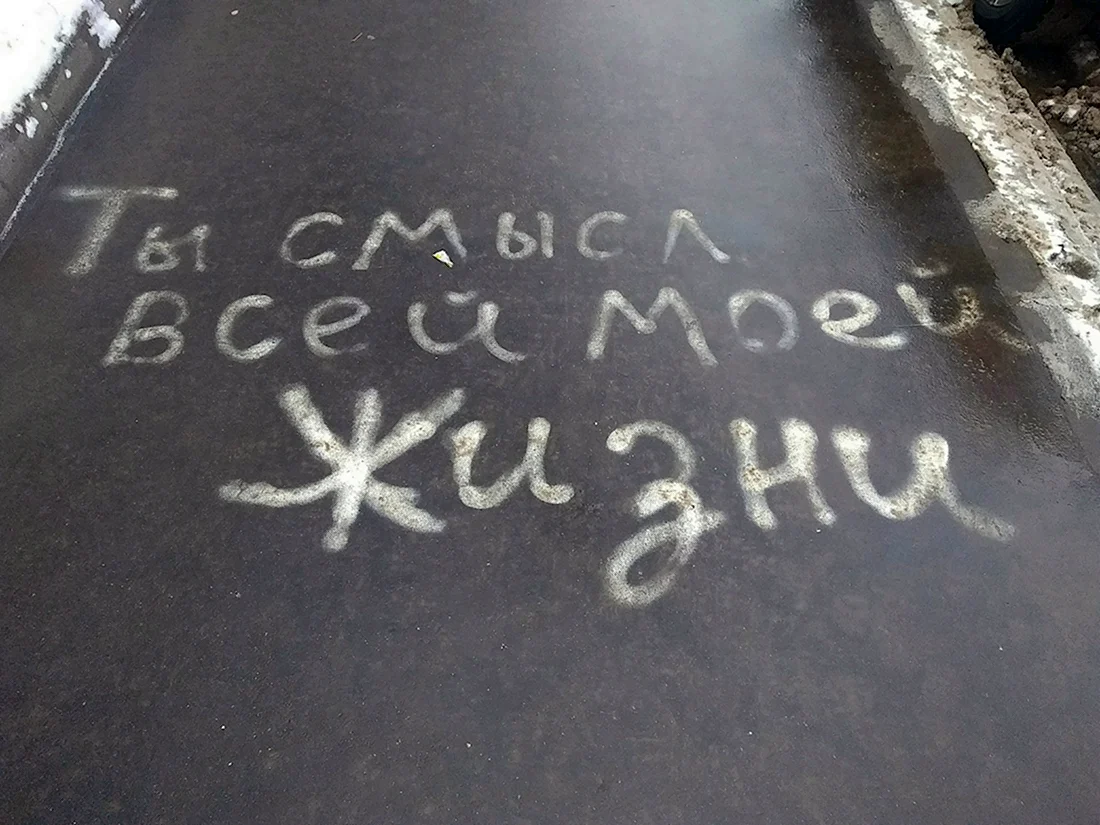 Ты смысл
всей моей
жизни